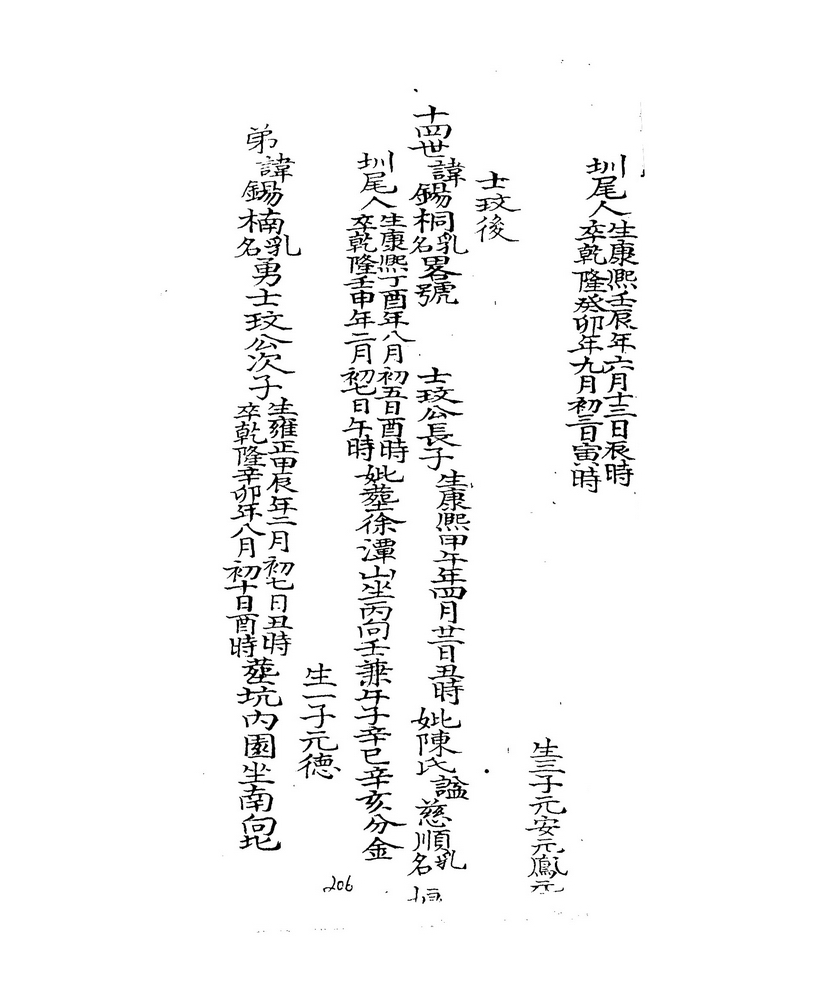 圳尾人生康熙壬辰年六月十三日辰時卒乾隆癸卯年九月初三日寅時
生三子元安元鳳元
士玟後
十四世諱錫桐乳名畧號
士玟公長子生康熙甲午年四月廿一日丑時妣陳氏謚慈順乳名
圳尾人生康熙丁酉年八月初五日酉時卒乾隆壬申年二月初七日午時妣葬徐潭山坐丙向壬兼午子辛巳辛亥分金
生一子元德
弟諱錫楠乳名勇士玟公次子生雍正甲辰年二月初七日丑時卒乾隆辛卯年八月初十日酉時葬坑內園坐南向北
206